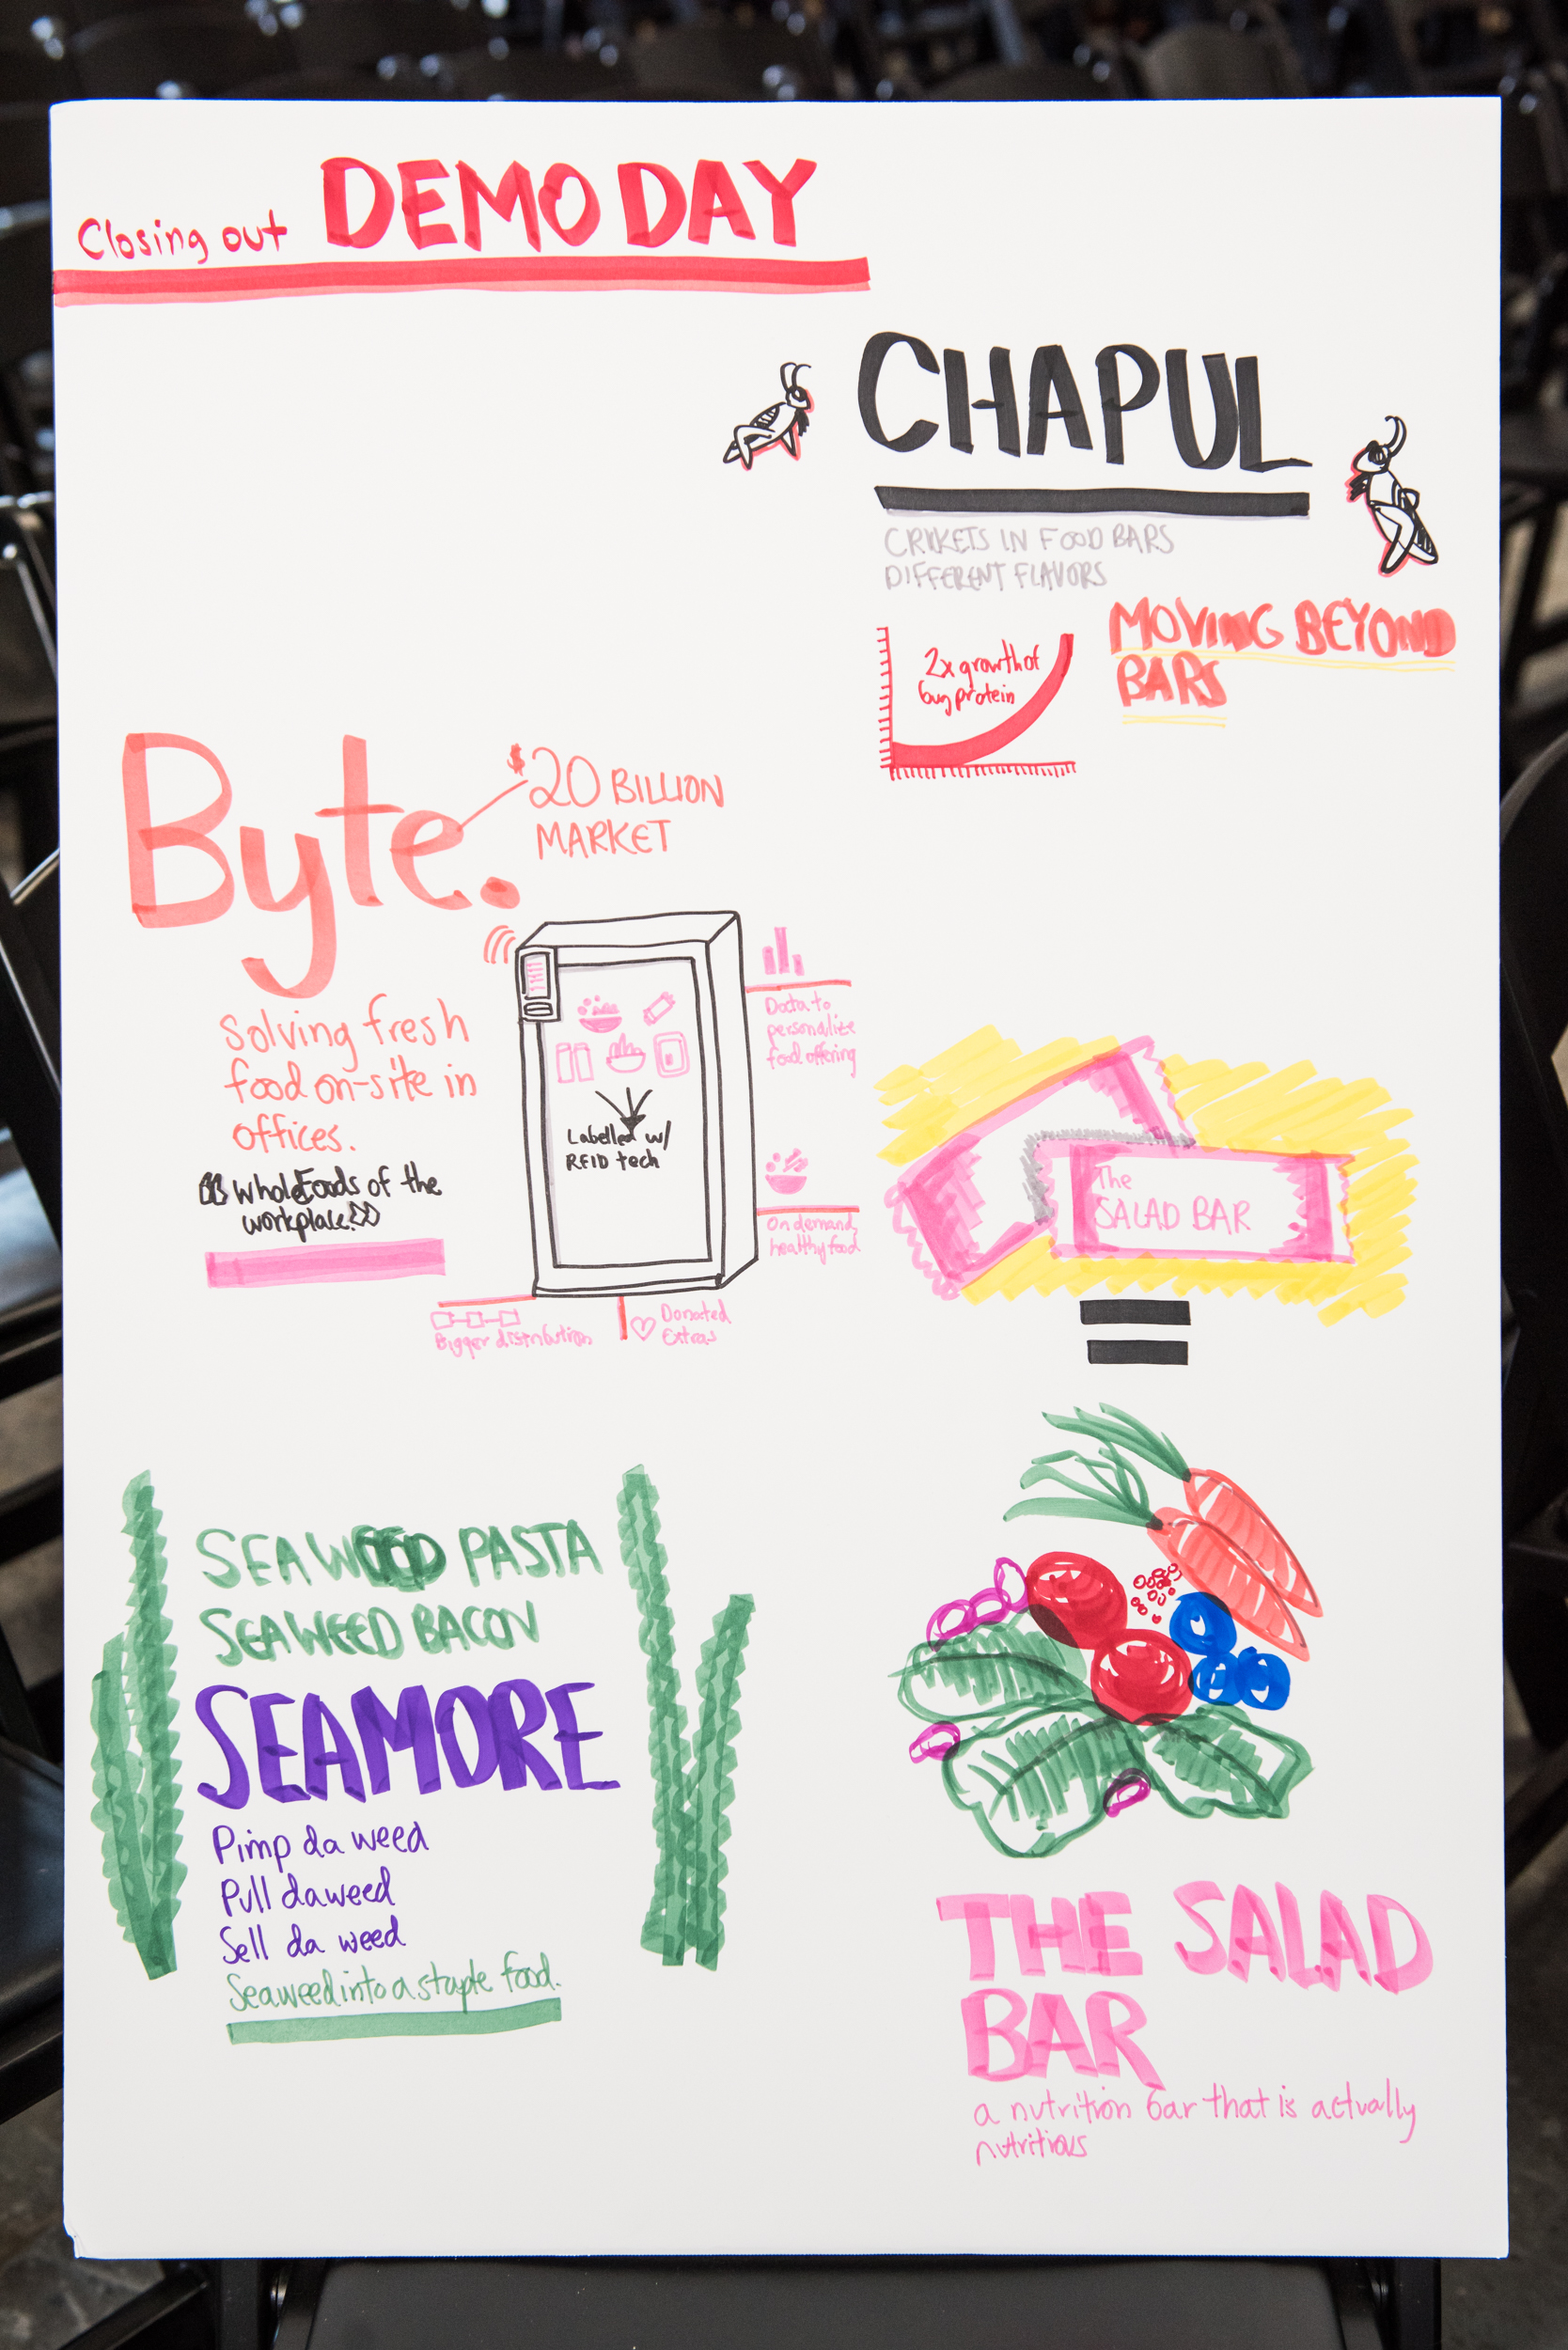 Closing out DEMO DAY
CHAPUL
CRIKETS IN FOOD BARS
DIFFERENT FLAVORS
MOVING BEYOND
BARS
2x growth of
bug protein
Byte.
$20 BILLION
MARKET
Solving fresh
food on-site in
offices.
"Whole Foods of the
workplace"
Labelled w/
RFID tech
Data to
personalize
food offering
On demand,
healthy food
Bigger distribution
Donated
Extras
The
SALAD BAR
SEAWEED PASTA
SEAWEED BACON
SEAMORE
Pimp da weed
Pull da weed
Sell da weed
Seaweed into a staple food.
THE SALAD
BAR
a nutrition bar that is actually
nutritious